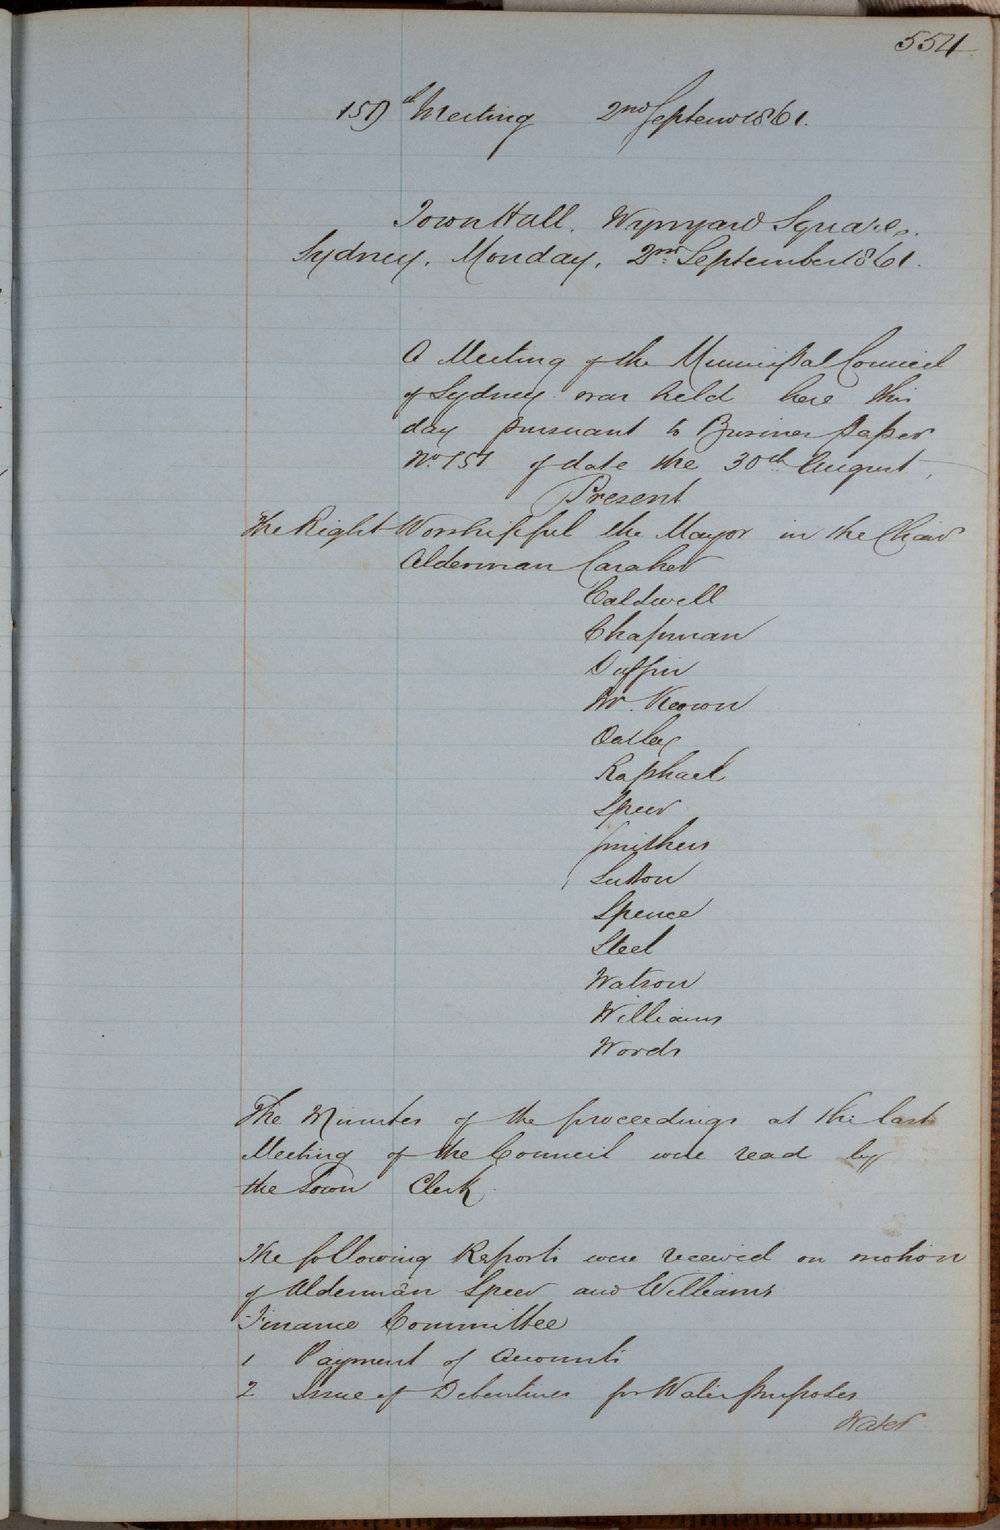 554
151th Meeting 2nd Septem 1861.
Town Hall. Wynyard Square.
Sydney. Monday. 2nd September 1861.
A Meeting of the Municipal Council
of Sydney was held here this
day pursuant to Business paper
No. 151 of date the 30th August,
Present
The Right Worshipful the Mayor in the Chair
Alderman Caraher
Caldwell
Chapman
Duffin
Mc. Keown
Oatley
Raphael
Speer
Smithers
Sutton
Spence
Steel
Watson
Williams
Woods
The Minutes of the proceedings at the last
Meeting of the Council were read by
the Town Clerk.
The following Reports were received on motion
of Alderman Speer and Williams
Finance Committee
1 Payment of Accounts
2 Issue of Debentures for Water purposes
Water